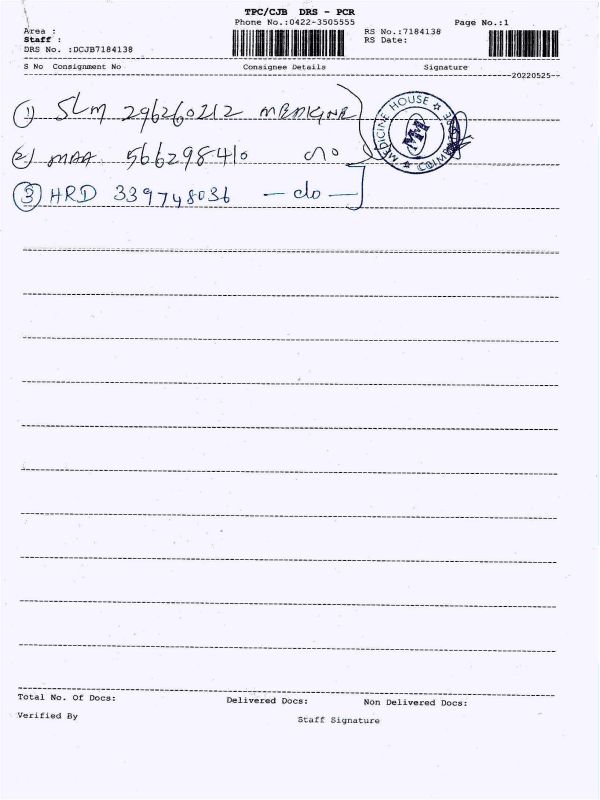 TPC/CJB DRS - PCR
Phone No.:0422-3505555 Page No.:1
Area : RS No.:7184138
Staff : RS Date:
DRS No. :DCJB7184138
S No Consignment No Consignee Details Signature
20220525
1) SLM 296260212 MEDICINE
2) MAA 566298410 do
3) HRD 339748036 - do -
MEDICINE HOUSE
MM
Total No. Of Docs: Delivered Docs: Non Delivered Docs:
Verified By Staff Signature